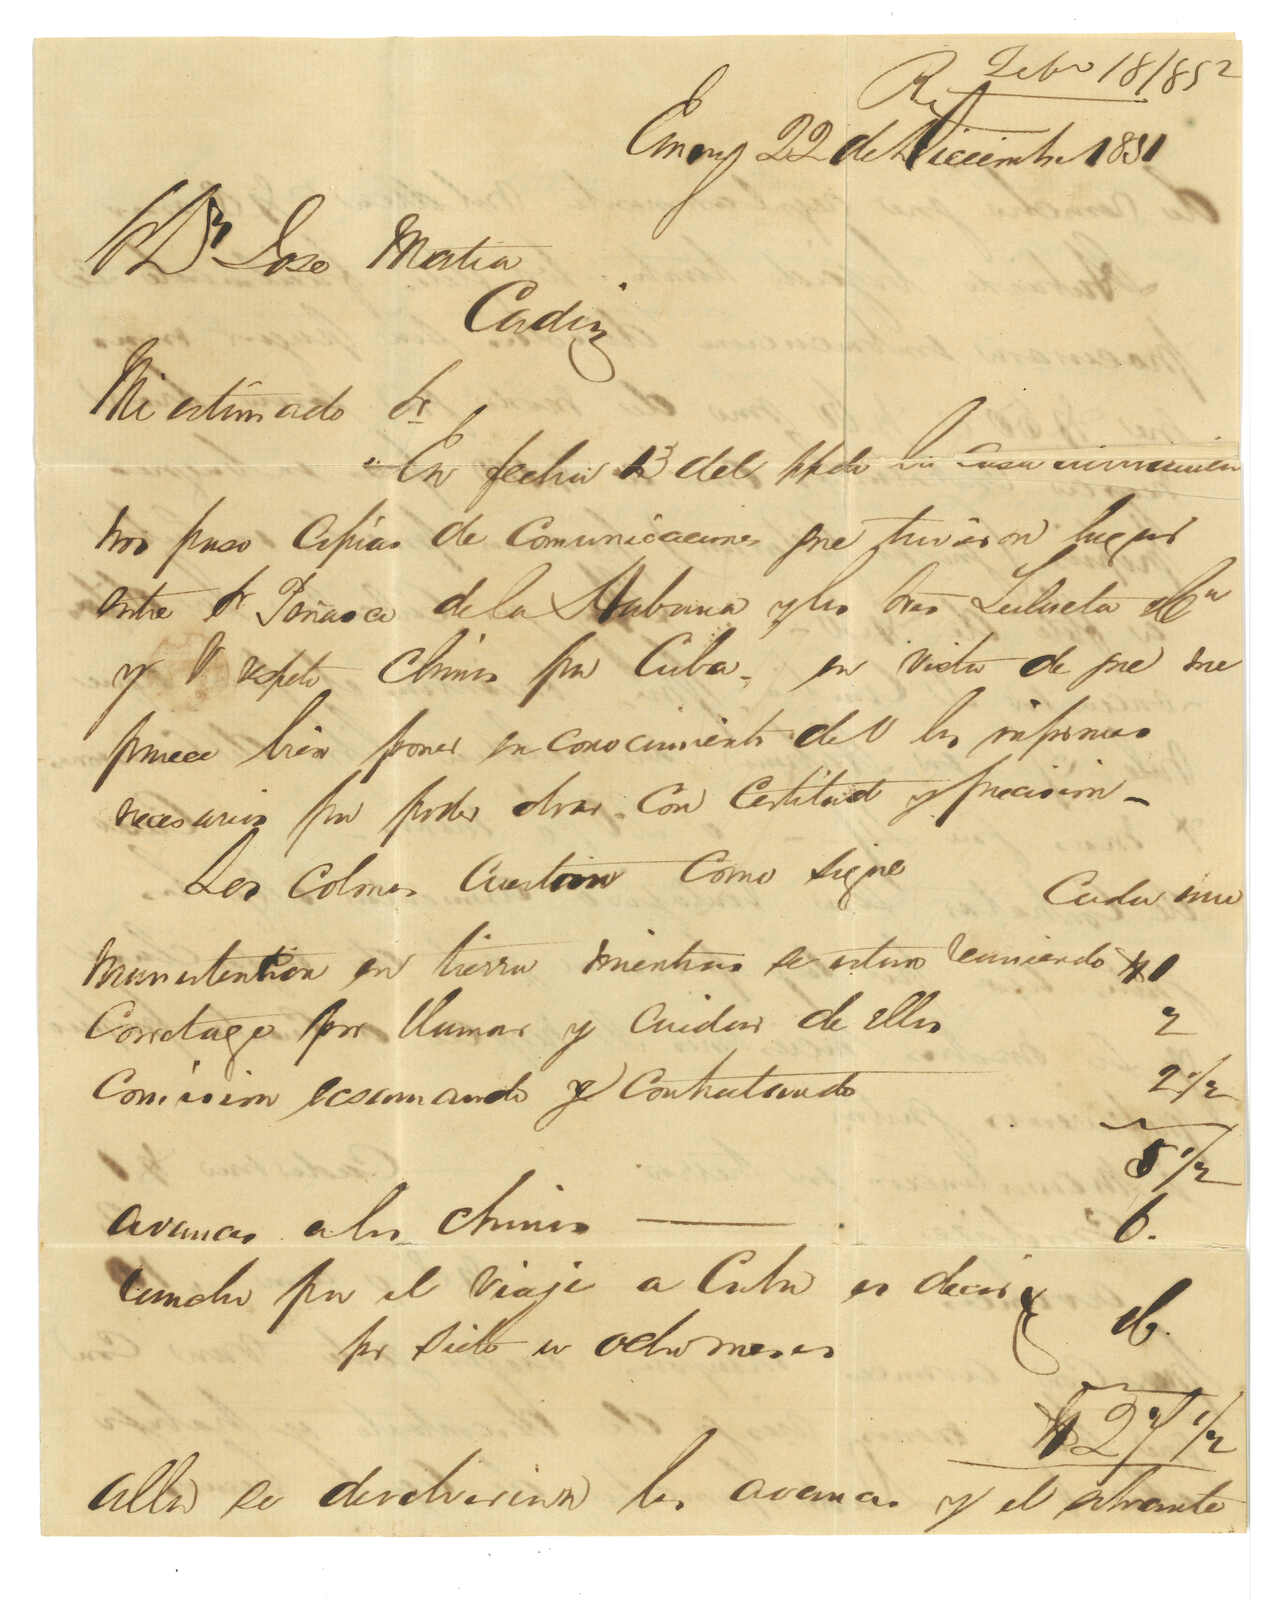 Rta Febo 18/852
Emuy 22 de Diciembre 1851
Sr Dn Jose Matia
Cadiz
Mi estimado Sr
En fecha 23 del ppdo la casa
nos puso copias de comunicaciones que tuvieron lugar
entre Sr Peñasco de la Habana y los Sres Zulueta & Ca
y V respeto chinos pa Cuba, en vista de que me
parece bien poner en conocimiento de V los informes
necesarios pa poder obrar con certitud y precision -
Los colonos cuestan como sigue
Cada uno
Manutention en tierra mientras se estan reuniendo $1
Corretage por llamar y cuidar de ellos 2
Comision ecsamando y contratando 2 1/2
5 1/2
avances a los chinos 6.
rancho pa el viaje a Cuba es decir
pr siete u ocho meses 16.
$27 1/2
alla se devolverian los avances y el sobrante